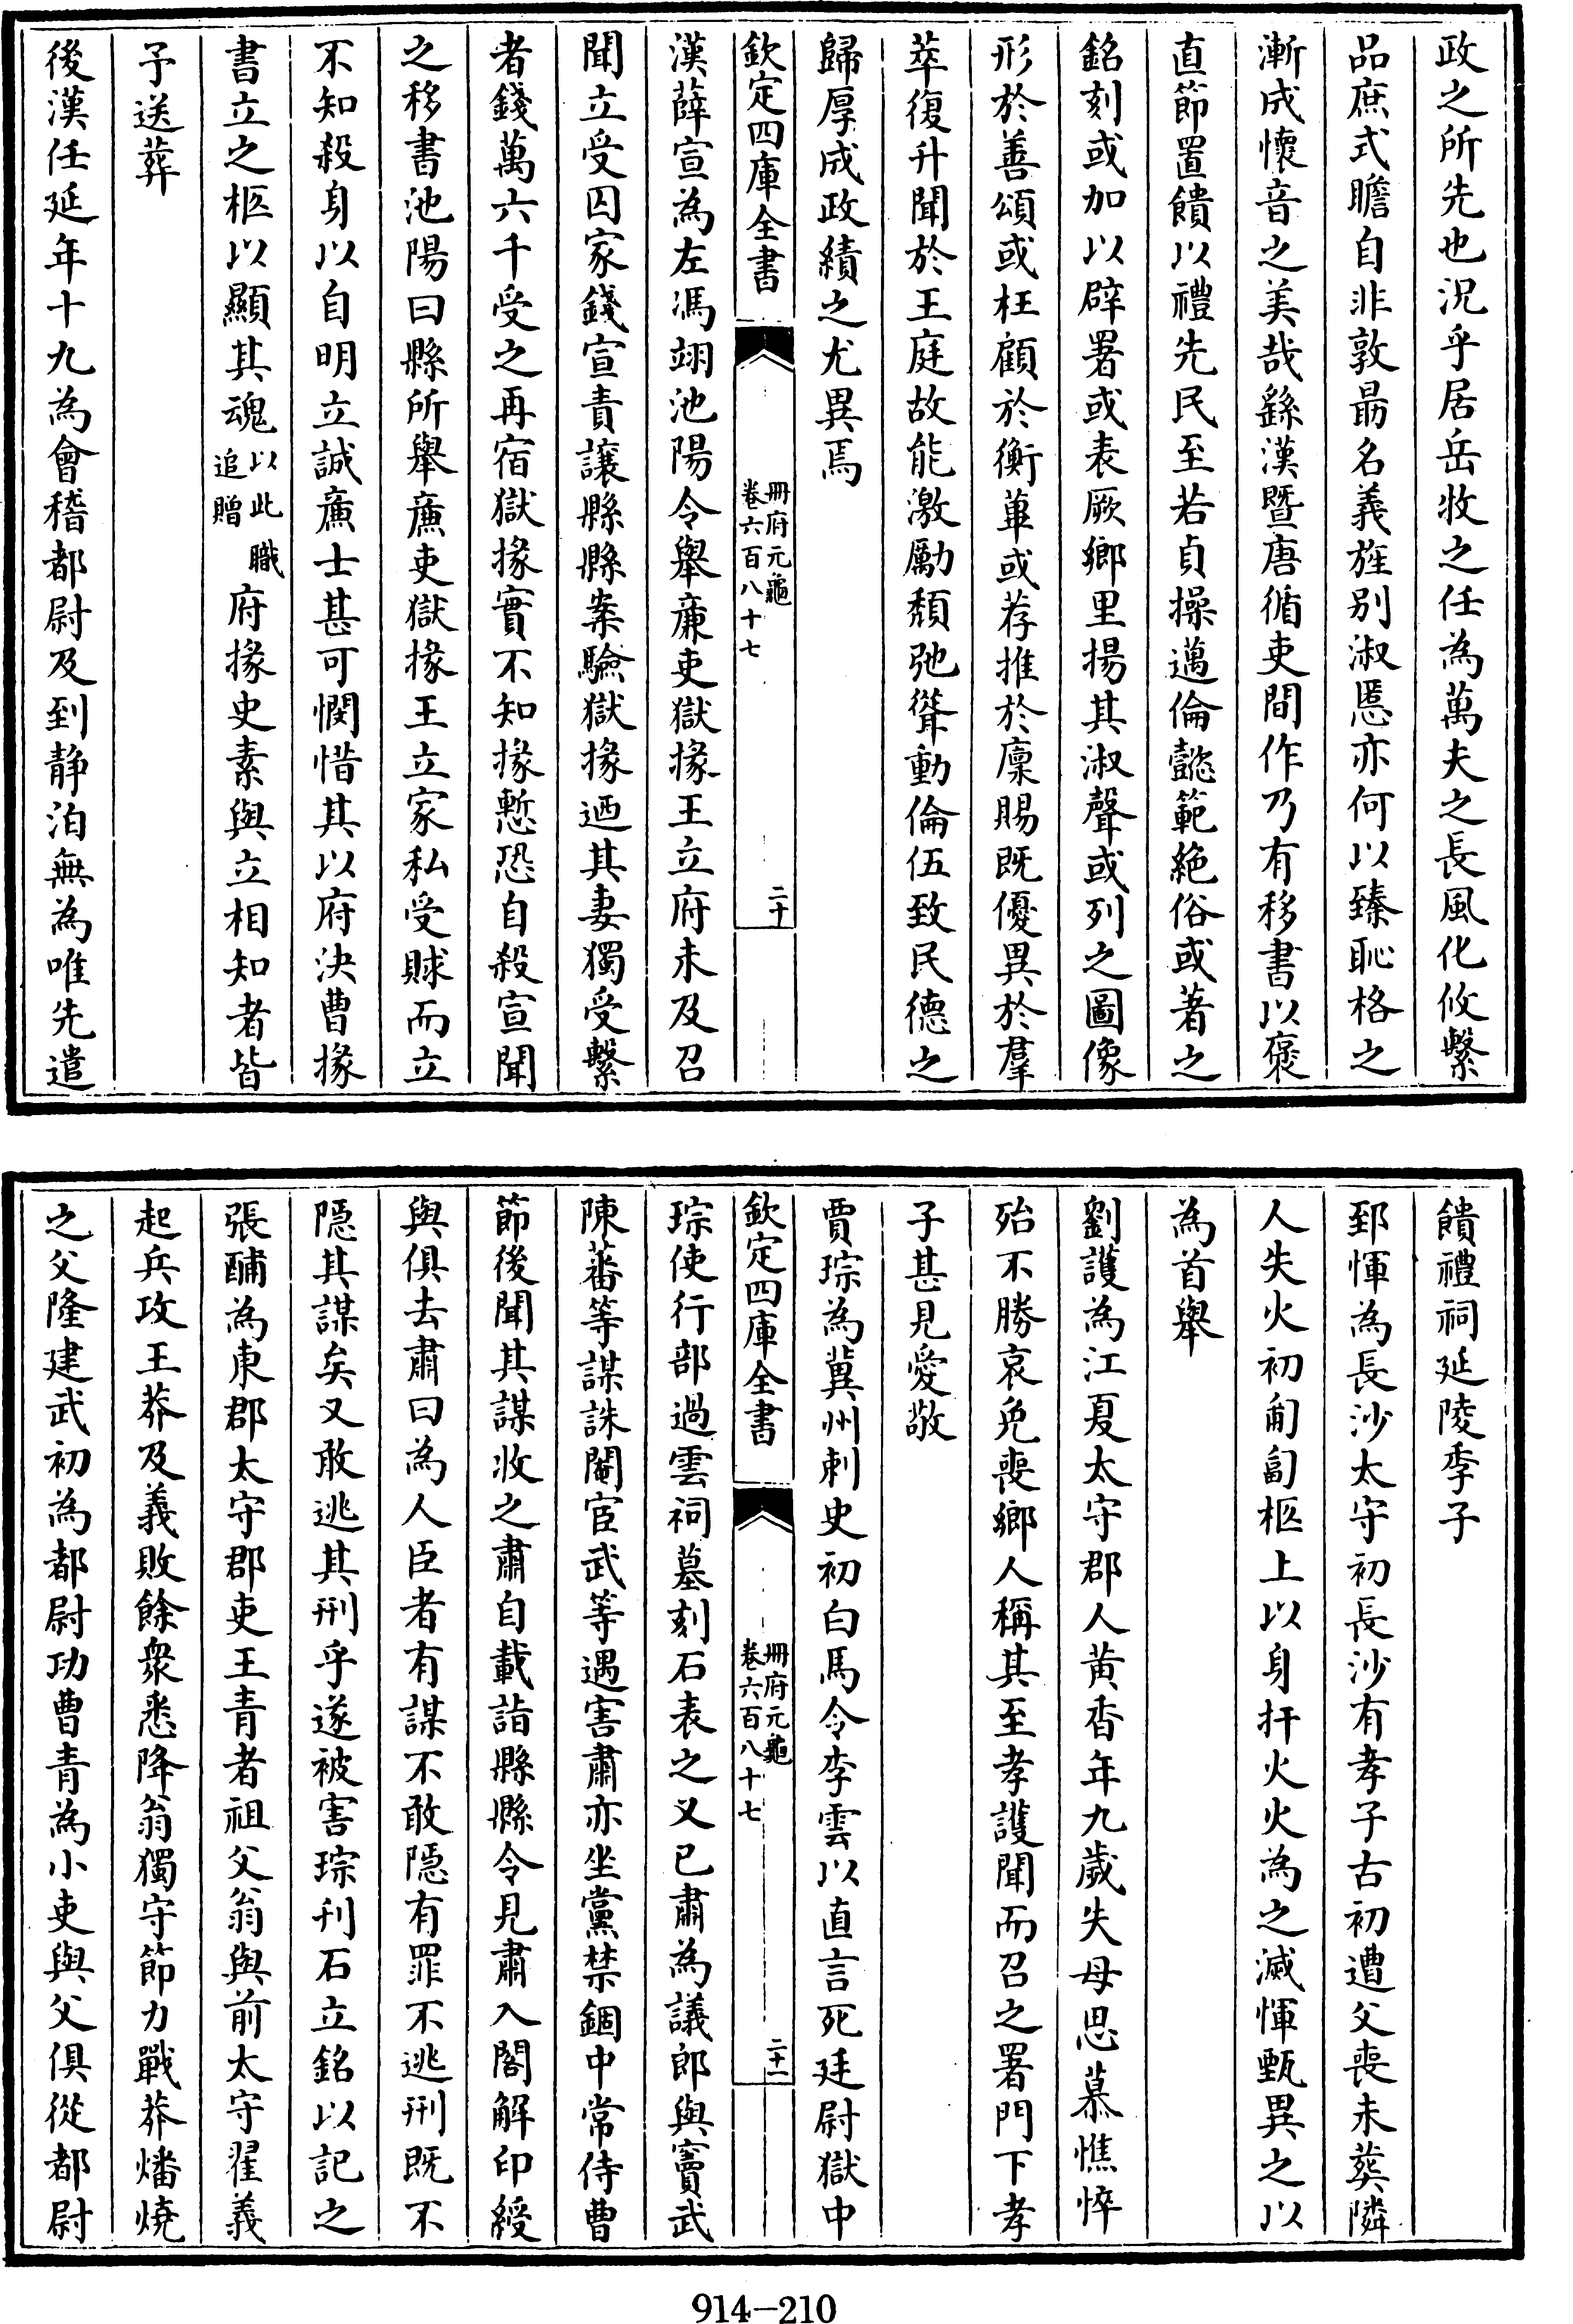 政之所先也況乎居岳牧之任為萬夫之長風化攸繫
品庶式瞻自非敦勗名義旌别淑慝亦何以臻恥格之
漸成懷音之美哉繇漢暨唐循吏間作乃有移書以褒
直節置饋以禮先民至若貞操邁倫懿範絶俗或著之
銘刻或加以辟署或表厥鄉里揚其淑聲或列之圖像
形於善頌或枉顧於衡蓽或荐推於廪賜既優異於羣
萃復升聞於王庭故能激勵頽弛聳動倫伍致民德之
歸厚成政績之尤異焉
欽定四庫全書
冊府元龜
卷六百八十七
二十
漢薛宣為左馮翊池陽令舉亷吏獄掾王立府未及召
聞立受囚家錢宣責讓縣縣案驗獄掾迺其妻獨受繫
者錢萬六千受之再宿獄掾實不知掾慙恐自殺宣聞
之移書池陽曰縣所舉亷吏獄掾王立家私受賕而立
不知殺身以自明立誠亷士甚可憫惜其以府决曹掾
書立之柩以顯其魂以此職追贈府掾史素與立相知者皆
予送葬
後漢任延年十九為會稽都尉及到静泊無為唯先遣
饋禮祠延陵季子
郅惲為長沙太守初長沙有孝子古初遭父喪未葬隣
人失火初匍匐柩上以身扞火火為之滅惲甄異之以
為首舉
劉護為江夏太守郡人黄香年九歲失母思慕憔悴
殆不勝哀免喪鄉人稱其至孝護聞而召之署門下孝
子甚見愛敬
賈琮為冀州刺史初白馬令李雲以直言死廷尉獄中
欽定四庫全書
冊府元龜
卷六百八十七
二十一
琮使行部過雲祠墓刻石表之又已肅為議郎與竇武
陳蕃等謀誅閹宦武等遇害肅亦坐黨禁錮中常侍曹
節後聞其謀收之肅自載詣縣縣令見肅入閤解印綬
與俱去肅曰為人臣者有謀不敢隠有罪不逃刑既不
隠其謀矣又敢逃其刑乎遂被害琮刋石立銘以記之
張酺為東郡太守郡吏王青者祖父翁與前太守翟義
起兵攻王莽及義敗餘衆悉降翁獨守節力戰莽燔燒
之父隆建武初為都尉功曹青為小吏與父俱從都尉
914-210